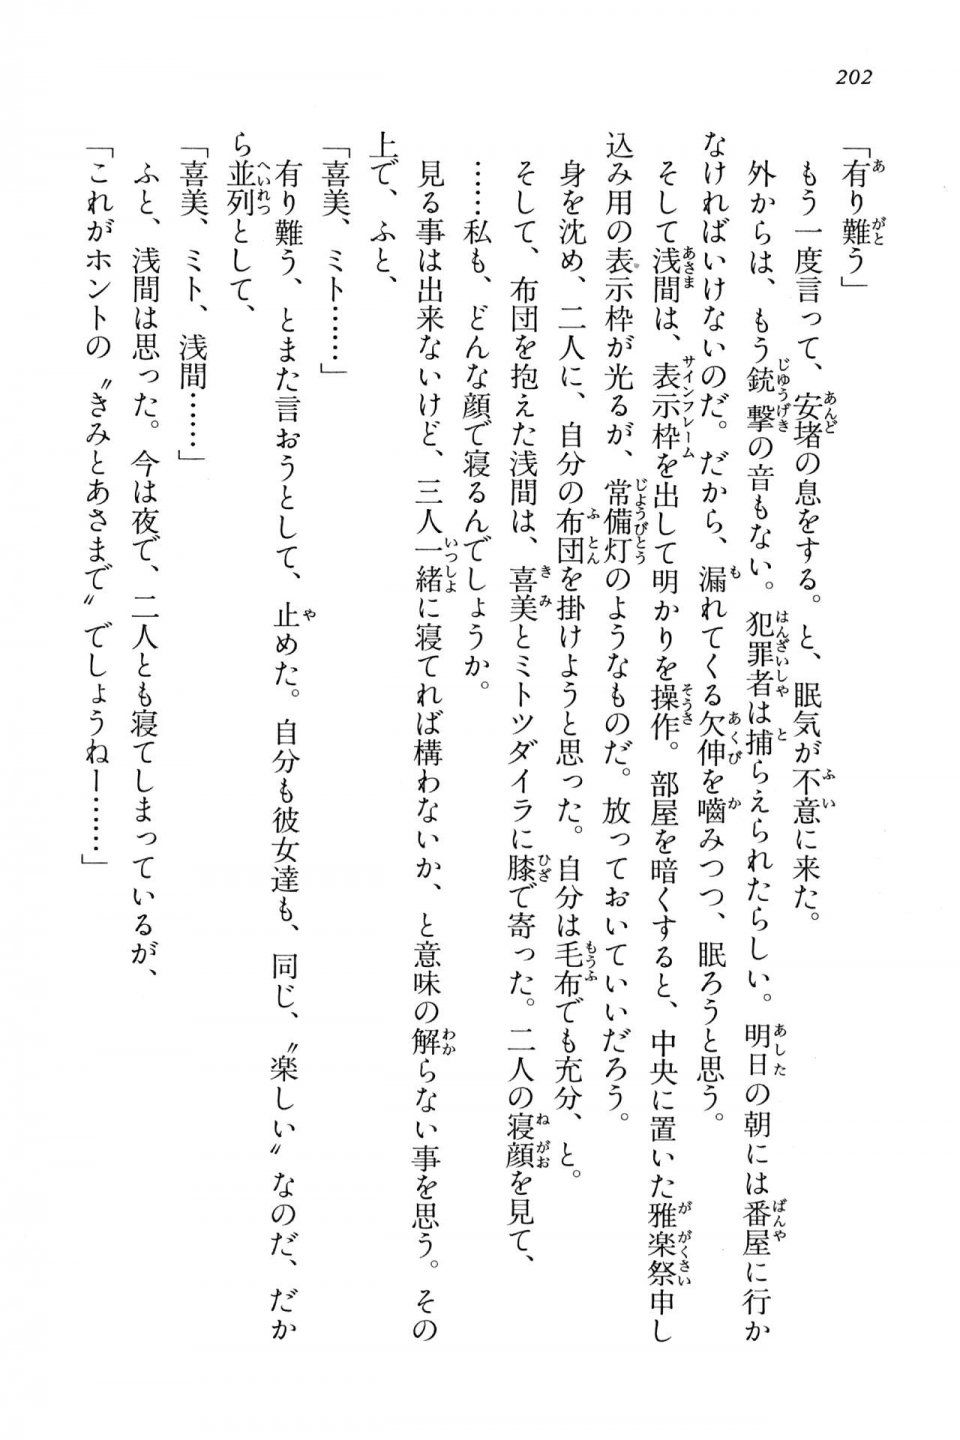 202
「有り難う」
もう一度言って、安堵の息をする。と、眠気が不意に来た。
外からは、もう銃撃の音もない。犯罪者は捕らえられたらしい。明日の朝には番屋に行か
なければいけないのだ。だから、漏れてくる欠伸を嚙みつつ、眠ろうと思う。
そして浅間は、表示枠を出して明かりを操作。部屋を暗くすると、中央に置いた雅楽祭申し
込み用の表示枠が光るが、常備灯のようなものだ。放っておいていいだろう。
身を沈め、二人に、自分の布団を掛けようと思った。自分は毛布でも充分、と。
そして、布団を抱えた浅間は、喜美とミトツダイラに膝で寄った。二人の寝顔を見て、
……私も、どんな顔で寝るんでしょうか。
見る事は出来ないけど、三人一緒に寝てれば構わないか、と意味の解らない事を思う。その
上で、ふと、
「喜美、ミト……」
有り難う、とまた言おうとして、止めた。自分も彼女達も、同じ、〝楽しい〟なのだ、だか
ら並列として、
「喜美、ミト、浅間……」
ふと、浅間は思った。今は夜で、二人とも寝てしまっているが、
「これがホントの〝きみとあさまで〟でしょうねー……」